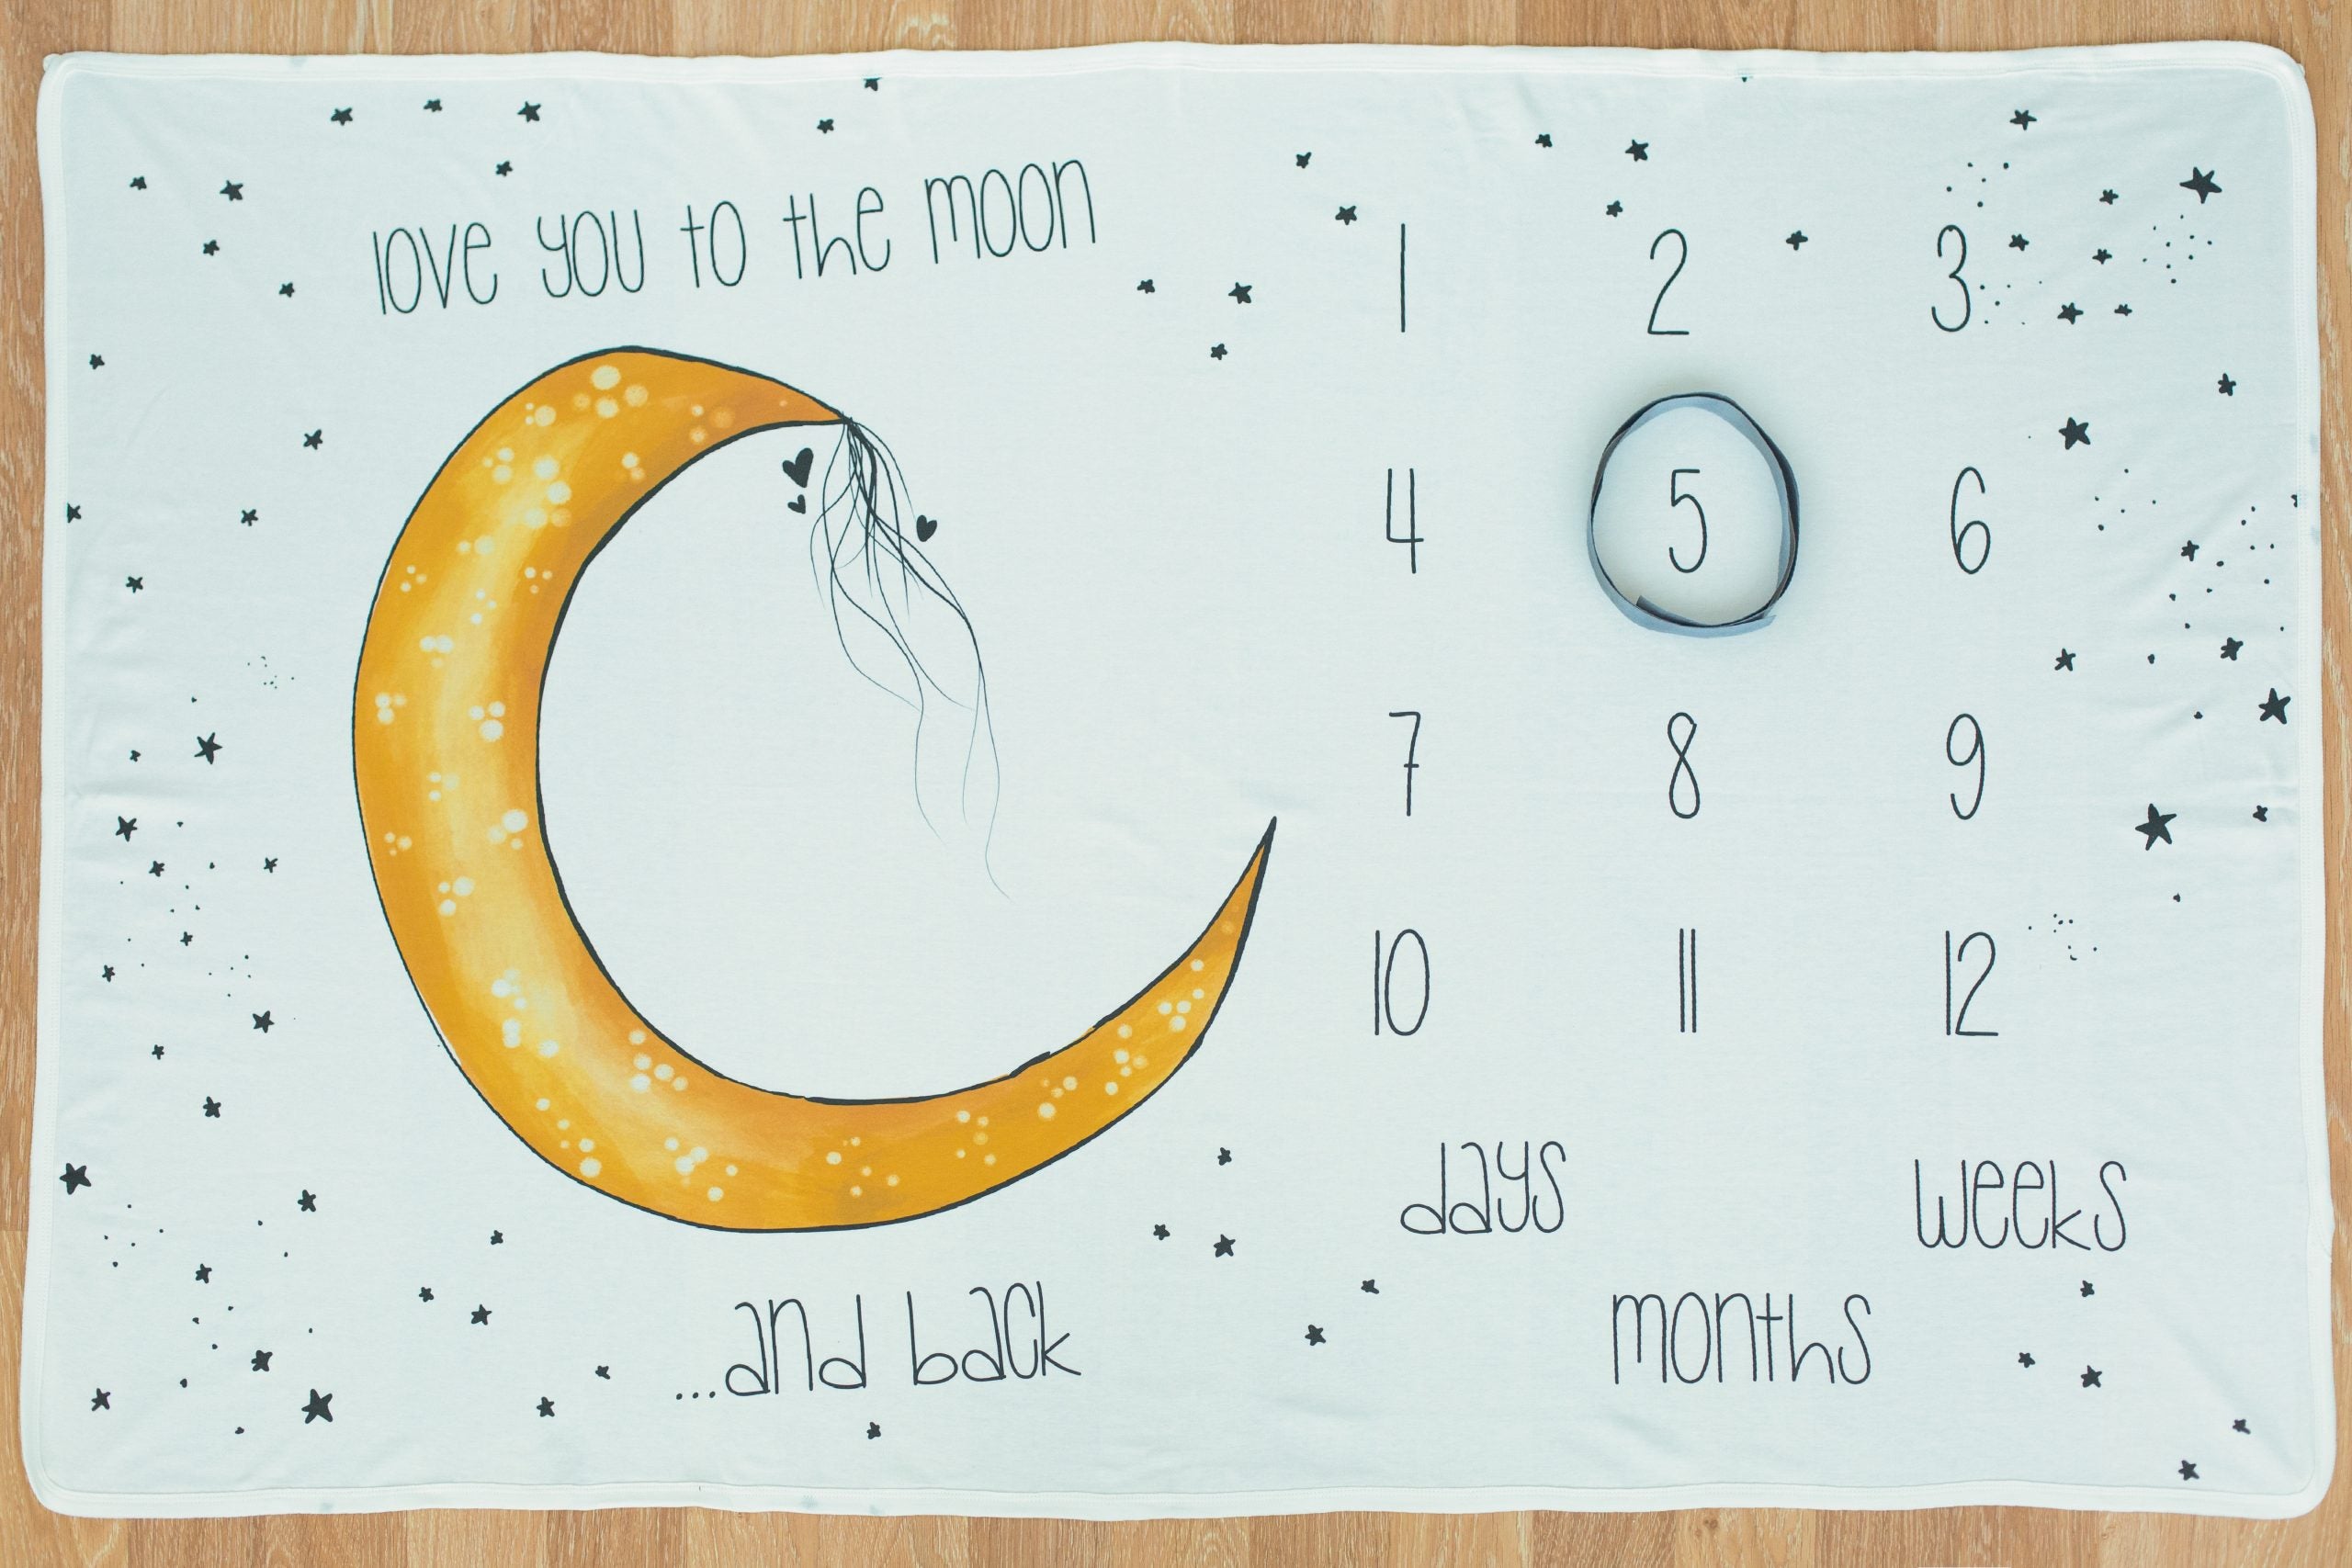 love you to the moon
1 2 3
4 5 6
7 8 9
10 11 12
days weeks
months
...and back